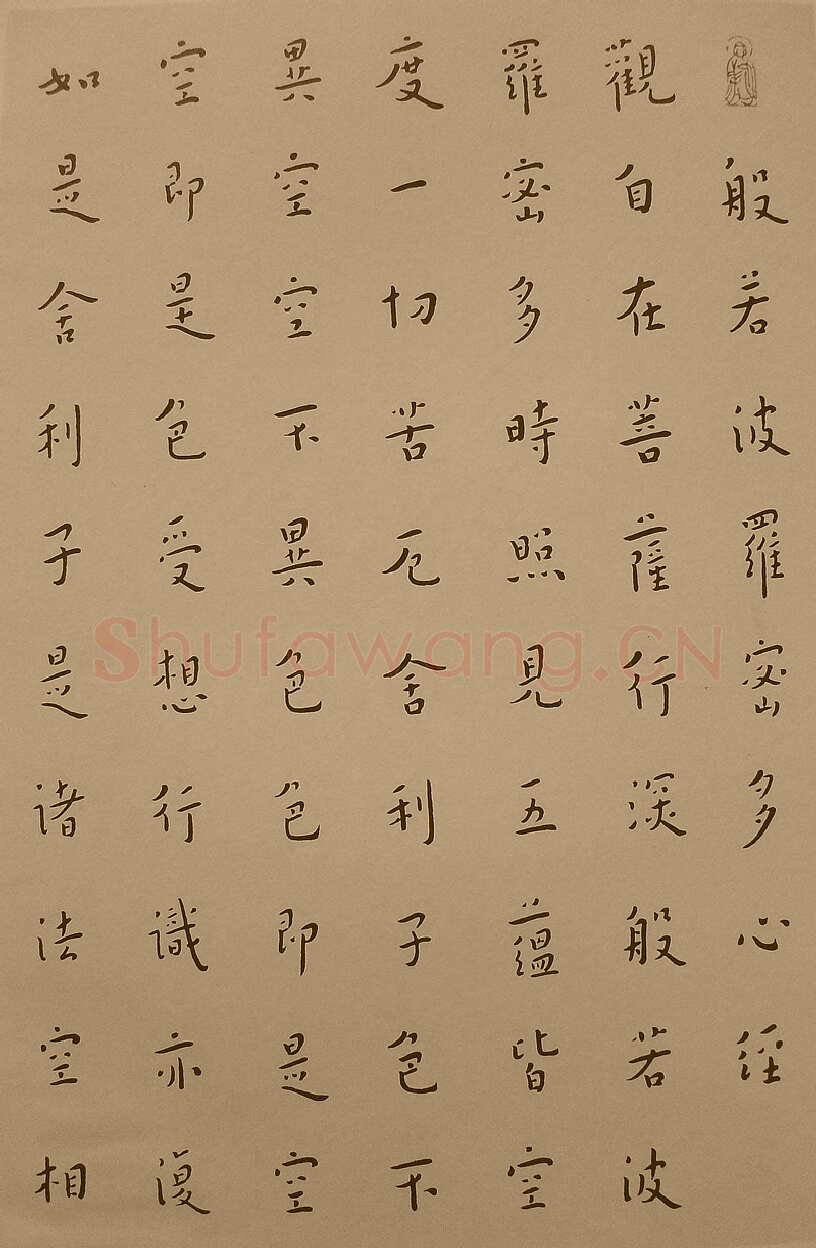 般若波羅蜜多心經
觀自在菩薩行深般若波
羅蜜多時照見五蘊皆空
度一切苦厄舍利子色不
異空空不異色色即是空
空即是色受想行識亦復
如是舍利子是諸法空相
Shufawang.CN